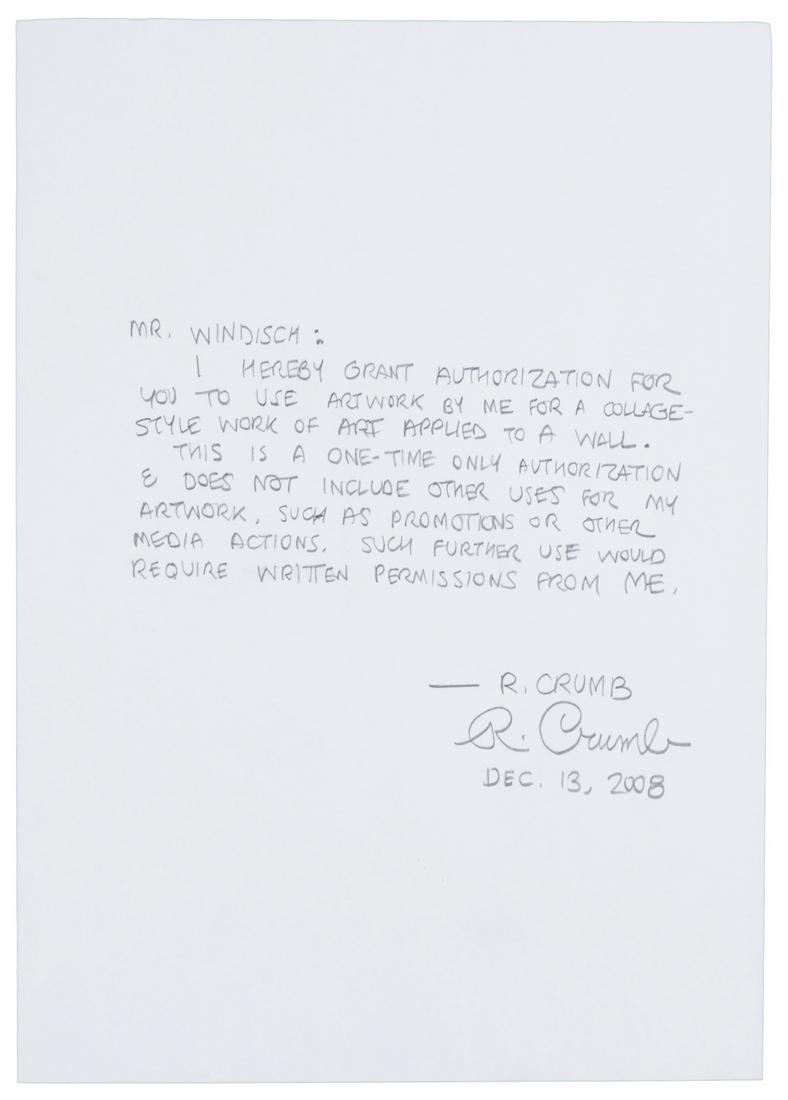 MR. WINDISCH :
I HEREBY GRANT AUTHORIZATION FOR
YOU TO USE ARTWORK BY ME FOR A COLLAGE-
STYLE WORK OF ART APPLIED TO A WALL.
THIS IS A ONE-TIME ONLY AUTHORIZATION
& DOES NOT INCLUDE OTHER USES FOR MY
ARTWORK, SUCH AS PROMOTIONS OR OTHER
MEDIA ACTIONS. SUCH FURTHER USE WOULD
REQUIRE WRITTEN PERMISSIONS FROM ME.
— R. CRUMB
R. Crumb
DEC. 13, 2008